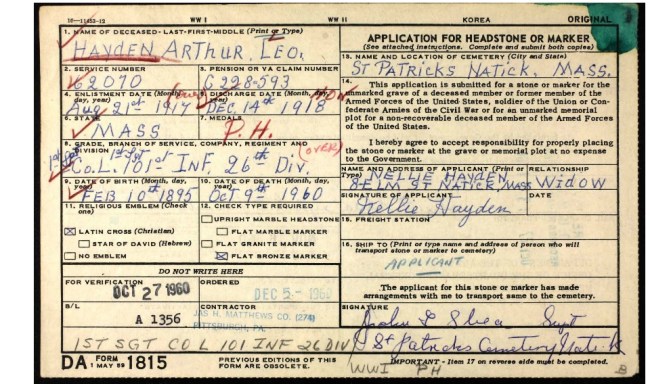 10-11452-12 WW I WW II KOREA ORIGINAL
1. NAME OF DECEASED-LAST-FIRST-MIDDLE (Print or Type)
HAYDEN ARTHUR, LEO,
2. SERVICE NUMBER
62070
3. PENSION OR VA CLAIM NUMBER
C 228-593
4. ENLISTMENT DATE (Month, day, year)
Aug 21st 1917
5. DISCHARGE DATE (Month, day, year)
DEC. 14th 1918
6. STATE
MASS
7. MEDALS
P.H.
(OVER)
8. GRADE, BRANCH OF SERVICE, COMPANY, REGIMENT AND DIVISION
1st Sgt
Co. L. 101st INF. 26th Div.
9. DATE OF BIRTH (Month, day, year)
FEB 10th 1895
10. DATE OF DEATH (Month, day, year)
Oct 9th 1960
11. RELIGIOUS EMBLEM (Check one)
LATIN CROSS (Christian)
STAR OF DAVID (Hebrew)
NO EMBLEM
12. CHECK TYPE REQUIRED
UPRIGHT MARBLE HEADSTONE
FLAT MARBLE MARKER
FLAT GRANITE MARKER
FLAT BRONZE MARKER
DO NOT WRITE HERE
FOR VERIFICATION
OCT 27 1960
ORDERED
DEC 5 - 1960
B/L
A 1356
CONTRACTOR
JAS H. MATTHEWS CO. (274)
PITTSBURGH, PA.
1ST SGT CO L 101 INF 26 DIV
APPLICATION FOR HEADSTONE OR MARKER
(See attached instructions. Complete and submit both copies)
13. NAME AND LOCATION OF CEMETERY (City and State)
ST PATRICKS NATICK, MASS.
14.
This application is submitted for a stone or marker for the
unmarked grave of a deceased member or former member of the
Armed Forces of the United States, soldier of the Union or Con-
federate Armies of the Civil War or for an unmarked memorial
plot for a non-recoverable deceased member of the Armed Forces
of the United States.
I hereby agree to accept responsibility for properly placing
the stone or marker at the grave or memorial plot at no expense
to the Government.
NAME AND ADDRESS OF APPLICANT (Print or Type)
NELLIE HAYDEN
8-ELM ST NATICK, MASS
RELATIONSHIP
WIDOW
SIGNATURE OF APPLICANT
Nellie Hayden
DATE
15. FREIGHT STATION
16. SHIP TO (Print or type name and address of person who will
transport stone or marker to cemetery)
APPLICANT
The applicant for this stone or marker has made
arrangements with me to transport same to the cemetery.
SIGNATURE
John F Shea Supt
St Patricks Cemetery Natick
DA FORM 1815
1 MAY 59
PREVIOUS EDITIONS OF THIS
FORM ARE OBSOLETE.
IMPORTANT - Item 17 on reverse side must be completed.
WWI PH
B